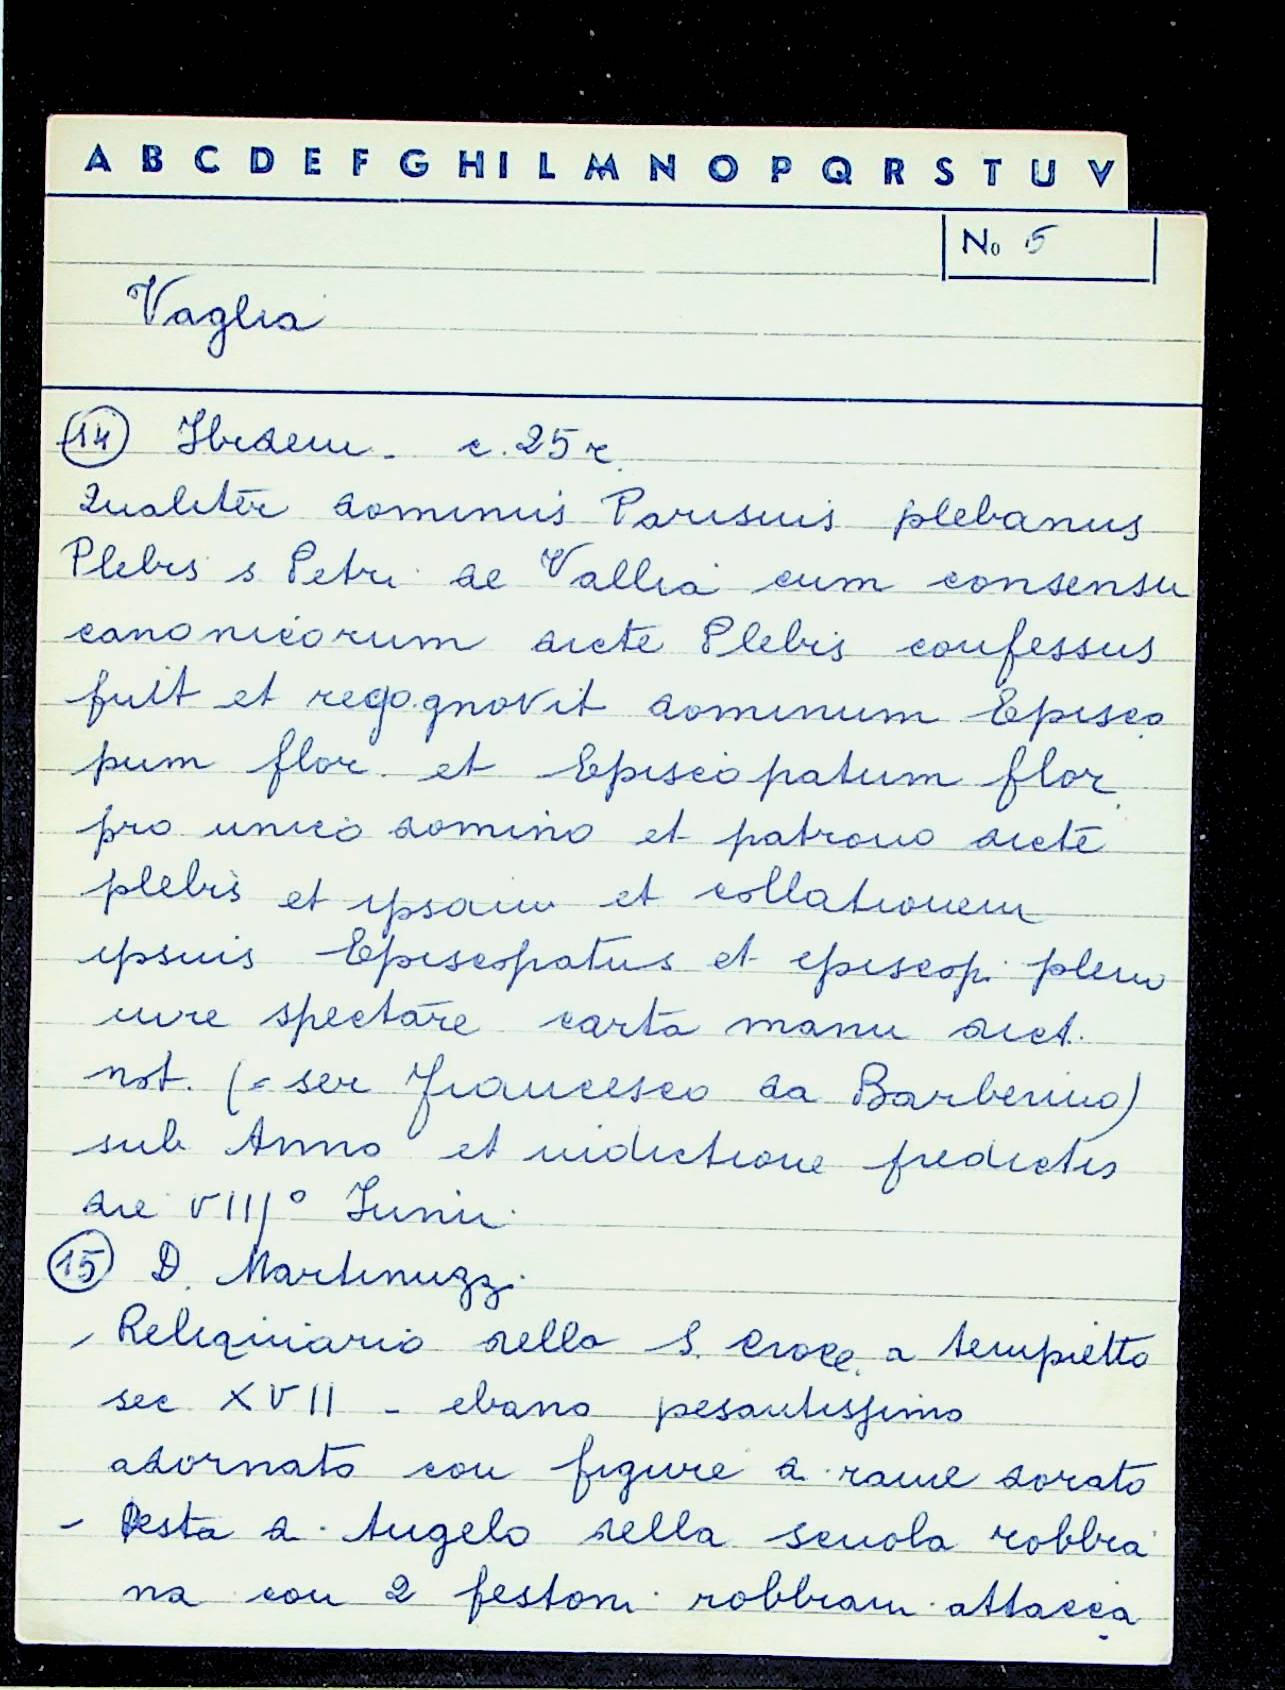 A B C D E F G H I L M N O P Q R S T U V
No 5
Vaglia
14 Ibidem - c. 25 r.
Qualiter dominus Parisius plebanus
Plebis s Petri de Vallia cum consensu
canonicorum dicte Plebis confessus
fuit et recognovit dominum Episco
pum flor. et Episcopatum flor.
pro unico domino et patrono dicte
plebis et ipsam et collationem
ipsius Episcopatus et episcopi pleno
iure spectare carta manu dict.
not. (= ser Francesco da Barberino)
sub Anno et indictione predictis
die VIII° Junii.
15 D. Martinuzzi
- Reliquiario della S. Croce a tempietto
sec XVII - ebano pesantissimo
adornato con figure di rame dorato
- Testa di Angelo della scuola robbia
na con 2 festoni robbiani attacca